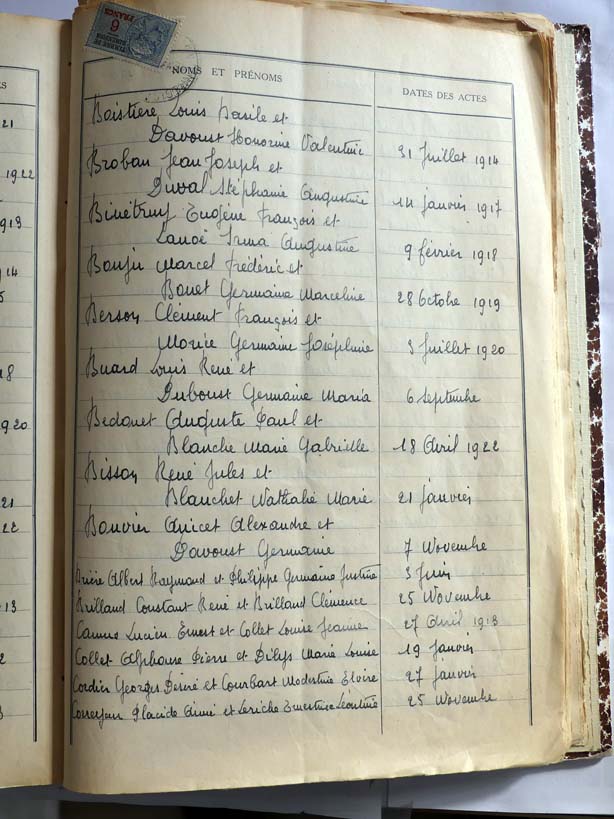 S
21
1922
1913
14
5
18
1920
21
22
13
2
3
6
FRANCS
NOMS ET PRÉNOMS
DATES DES ACTES
Boistière Louis Basile et
Davoust Honorine Valentine 31 Juillet 1914
Broban Jean Joseph et
Duval Stéphanie Augustine 14 janvier 1917
Binétruy Eugène François et
Lanoë Irma Augustine 9 février 1918
Bouju Marcel Frédéric et
Bouet Germaine Marceline 28 Octobre 1919
Berson Clément François et
Morice Germaine Joséphine 3 Juillet 1920
Buard Louis René et
Duboust Germaine Maria 6 Septembre
Bedouet Auguste Paul et
Blanche Marie Gabrielle 18 Avril 1922
Bisson René Jules et
Blanchet Nathalie Marie 21 janvier
Bouvier Anicet Alexandre et
Davoust Germaine 7 Novembre
Albert Raymond et Philippe Germaine Justine 3 Juin
Brilland Constant René et Brilland Clémence 25 Novembre
Camus Lucien Ernest et Collet Louise Jeanne 27 Avril 1913
Collet Alphonse Pierre et Dilys Marie Louise 19 janvier
Cordier Georges Désiré et Courbart Modestine Elvire 27 janvier
Placide Aimé et Leriche Ernestine Léontine 25 Novembre